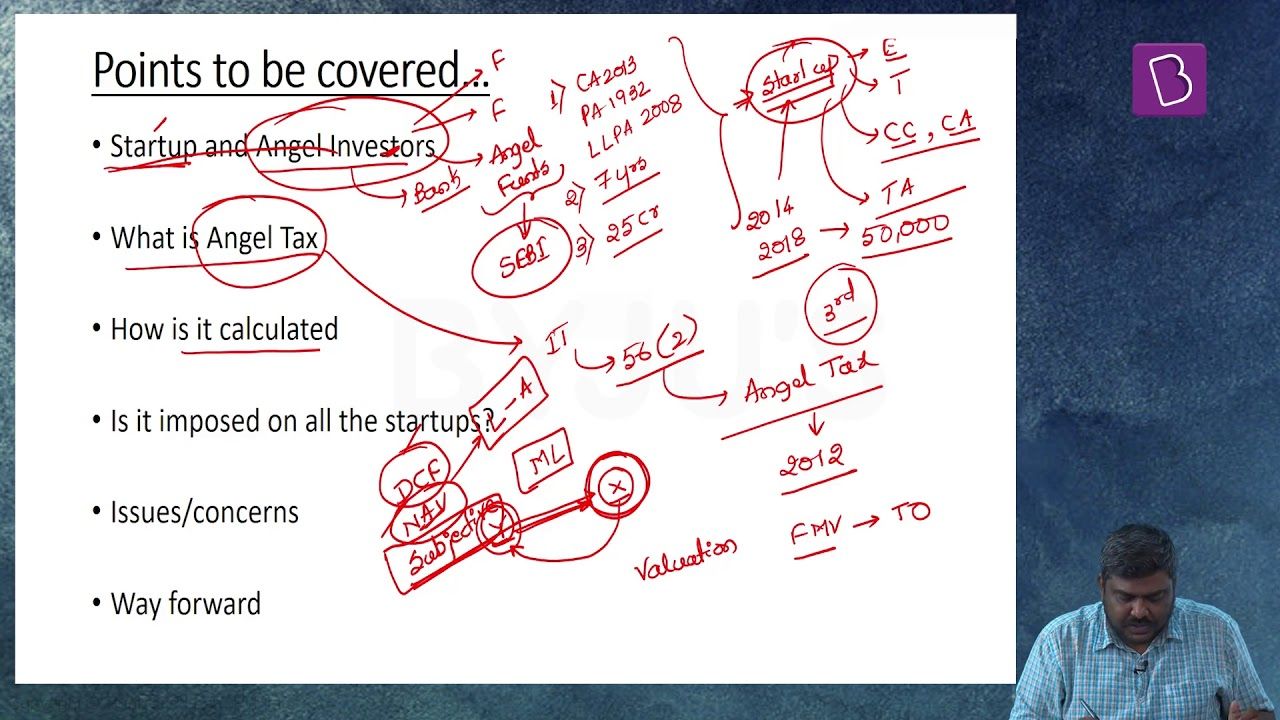 Points to be covered...
• Startup and Angel Investors
• What is Angel Tax
• How is it calculated
• Is it imposed on all the startups?
• Issues/concerns
• Way forward
F
F
Angel
Funds
Bank
SEBI
1) CA 2013
PA-1932
LLPA 2008
2) 7 yrs
3) 25 cr
Start up
E
T
CC, CA
TA
2014
2018 → 50,000
3rd
IT
56(2)
Angel Tax
2012
FMV → TO
Valuation
L-A
ML
DCF
NAV
Subjective
Y
X
BYJU'S
B